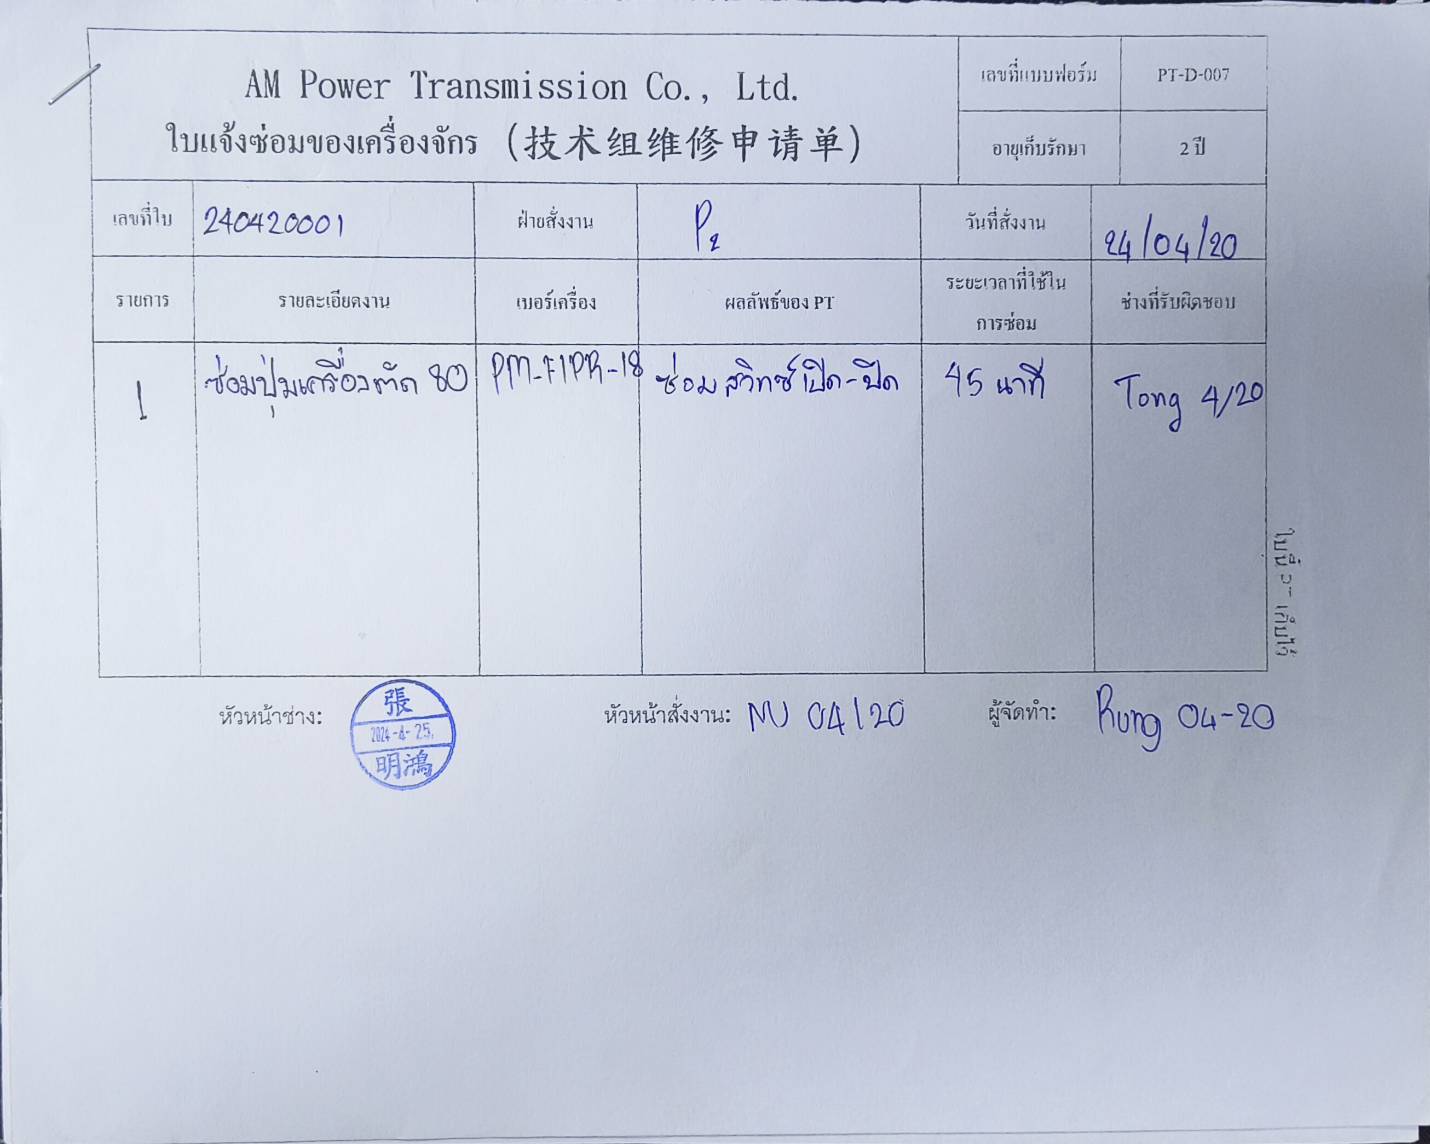 AM Power Transmission Co., Ltd.
ใบแจ้งซ่อมของเครื่องจักร (技术组维修申请单)
เลขที่แบบฟอร์ม PT-D-007
อายุเก็บรักษา 2 ปี
เลขที่ใบ 240420001 ฝ่ายสั่งงาน P2 วันที่สั่งงาน 24/04/20
รายการ รายละเอียดงาน เบอร์เครื่อง ผลลัพธ์ของ PT ระยะเวลาที่ใช้ใน
การซ่อม ช่างที่รับผิดชอบ
1 ซ่อมปุ่มเครื่องตัด 80 PM-F1PR-18 ซ่อมสวิทซ์เปิด-ปิด 45 นาที Tong 4/20
หัวหน้าช่าง: 張
2024-4-25.
明鴻
หัวหน้าสั่งงาน: NU 04/20 ผู้จัดทำ: Rung 04-20